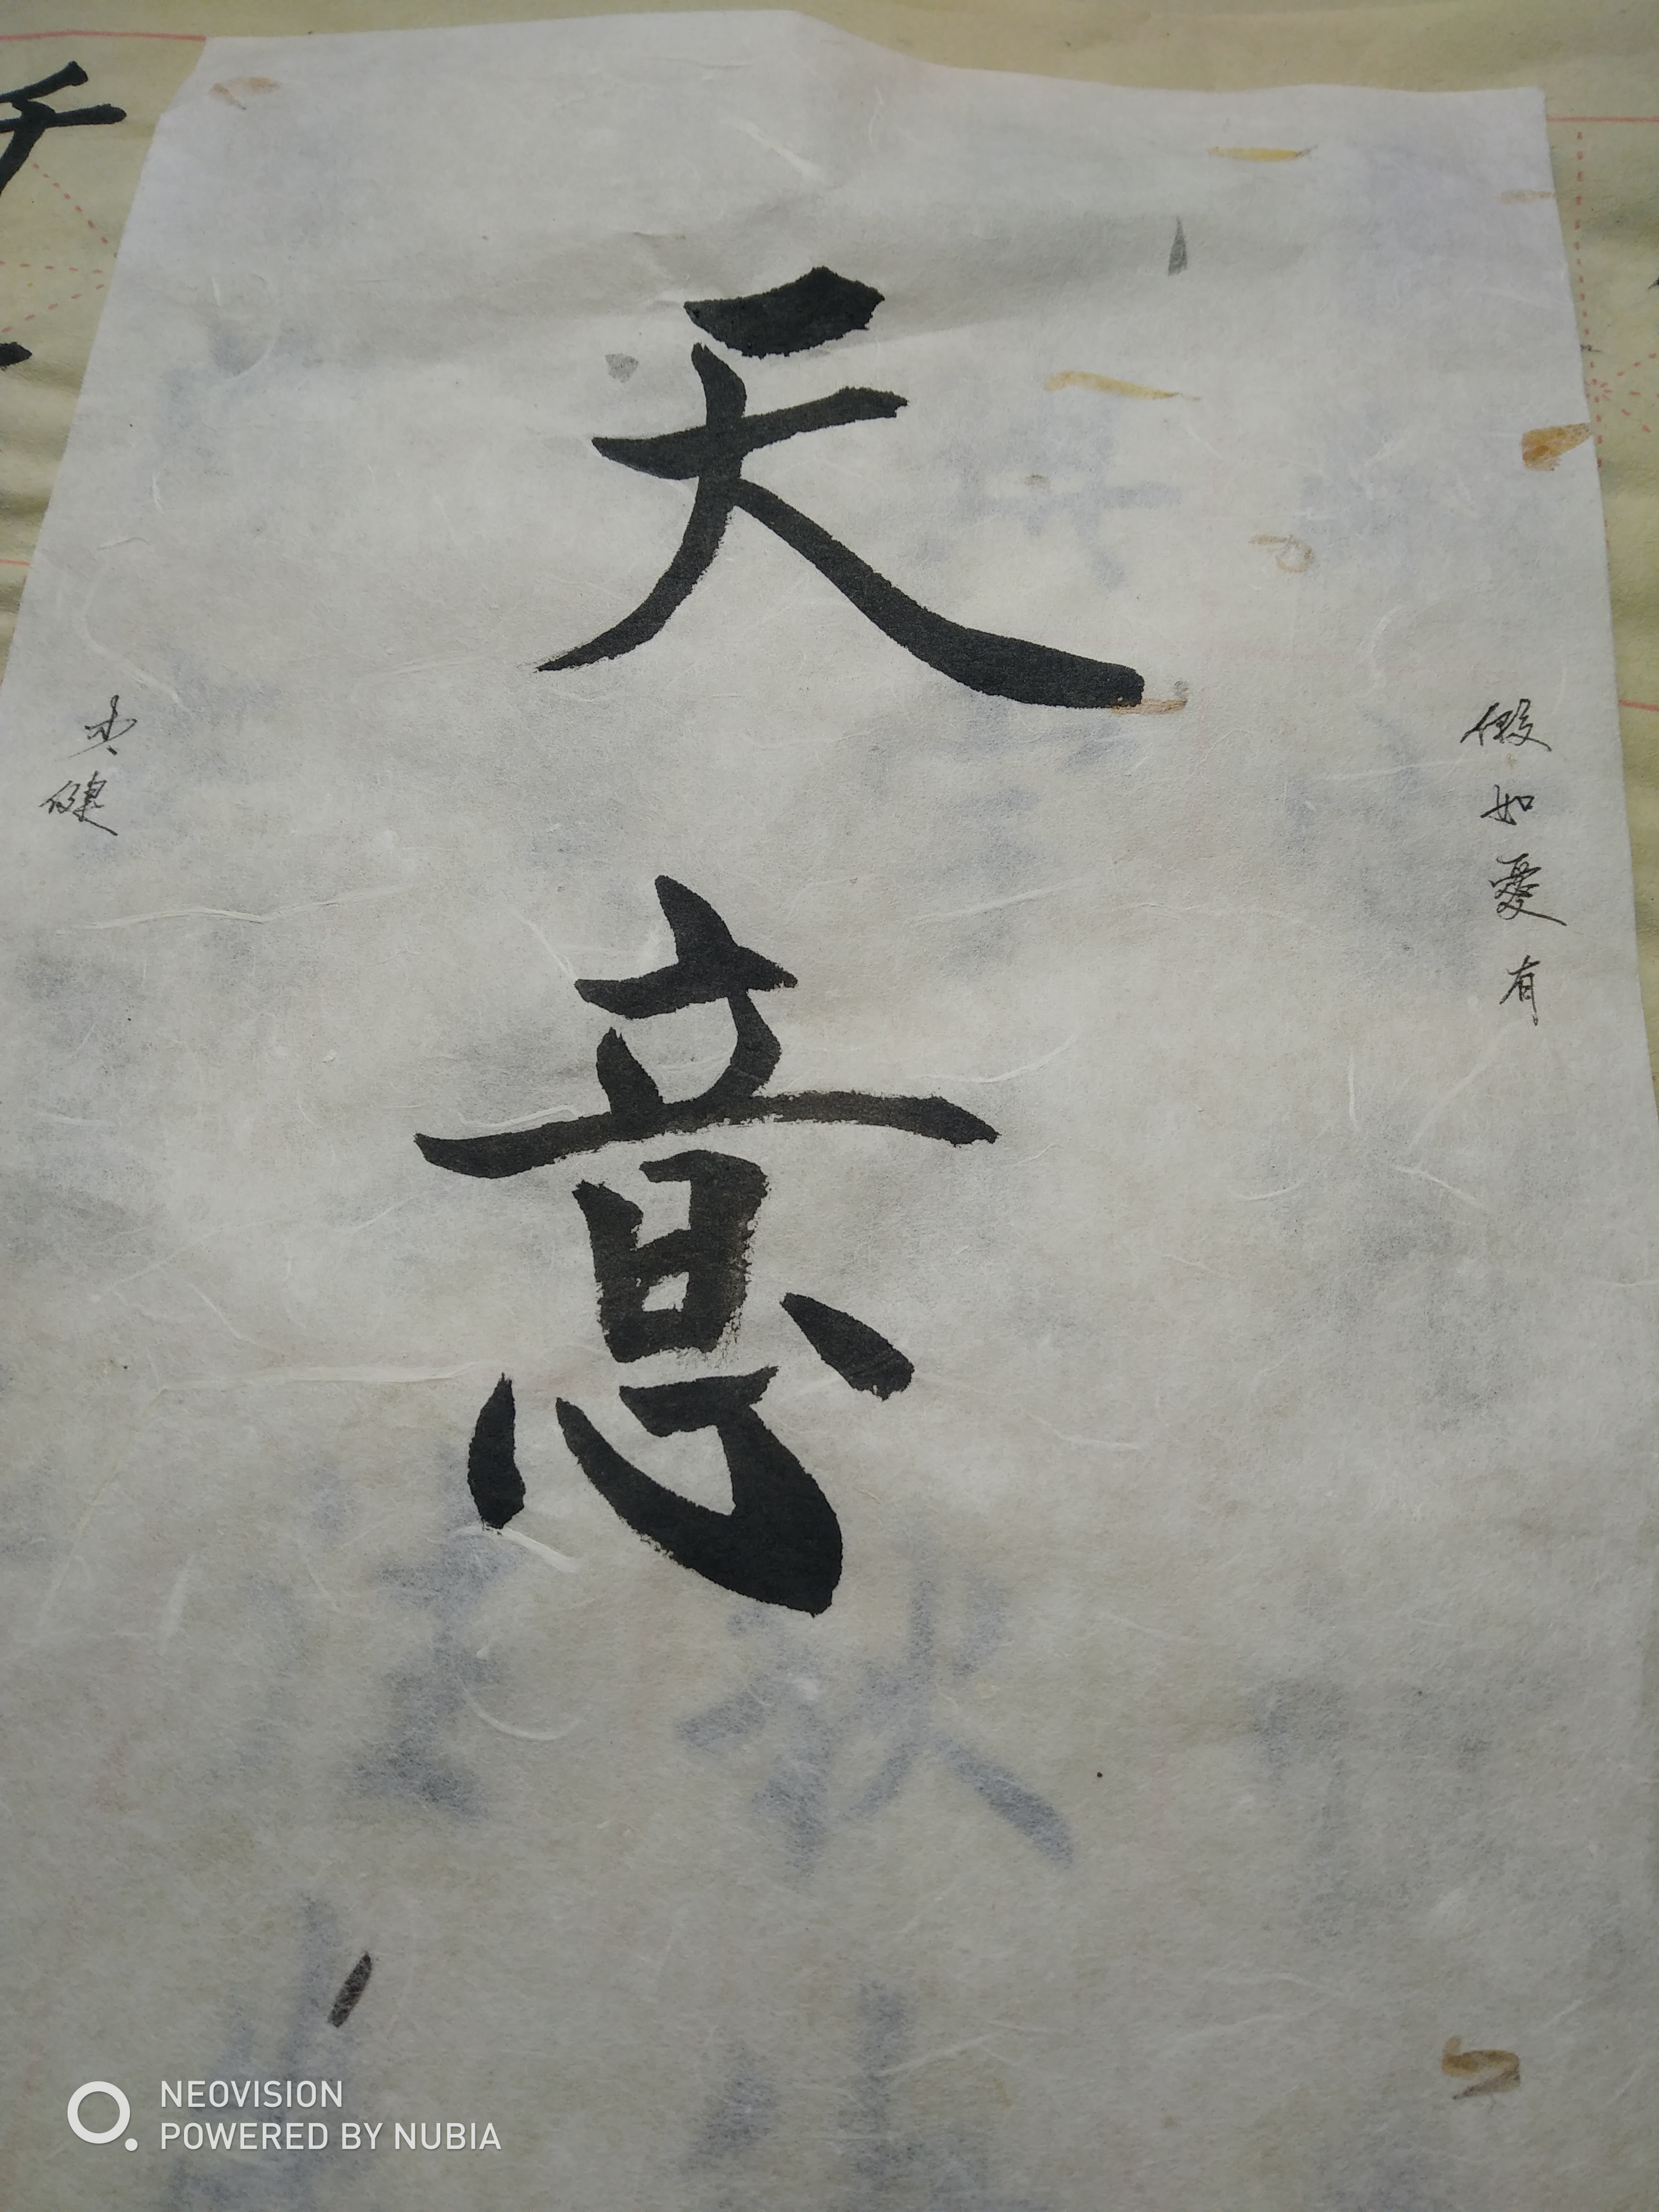 假如愛有
天意
NEOVISION
POWERED BY NUBIA